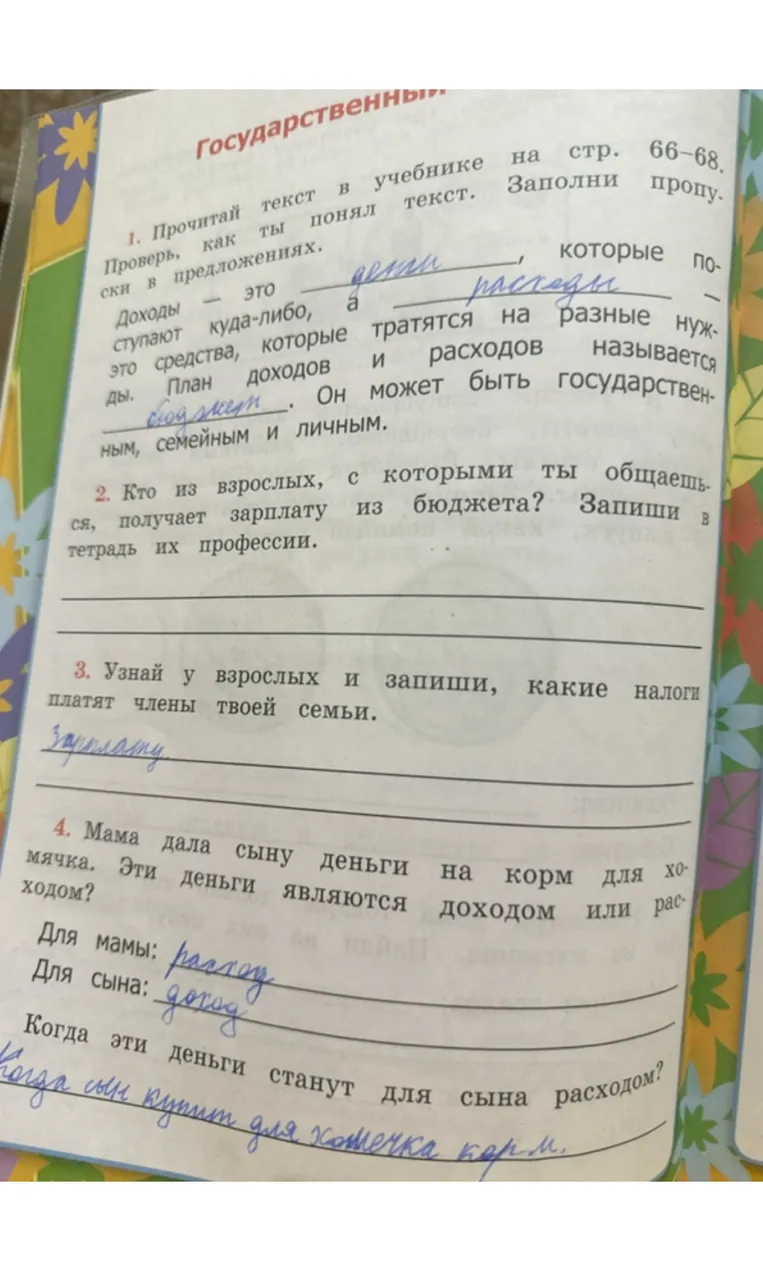 Государственный
1. Прочитай текст в учебнике на стр. 66–68.
Проверь, как ты понял текст. Заполни пропу-
ски в предложениях.
Доходы — это деньги, которые по-
ступают куда-либо, а расходы —
это средства, которые тратятся на разные нуж-
ды. План доходов и расходов называется
бюджет. Он может быть государствен-
ным, семейным и личным.
2. Кто из взрослых, с которыми ты общаешь-
ся, получает зарплату из бюджета? Запиши в
тетрадь их профессии.
3. Узнай у взрослых и запиши, какие налоги
платят члены твоей семьи.
Зарплату
4. Мама дала сыну деньги на корм для хо-
мячка. Эти деньги являются доходом или рас-
ходом?
Для мамы: расход
Для сына: доход
Когда эти деньги станут для сына расходом?
Когда сын купит для хомечка корм.